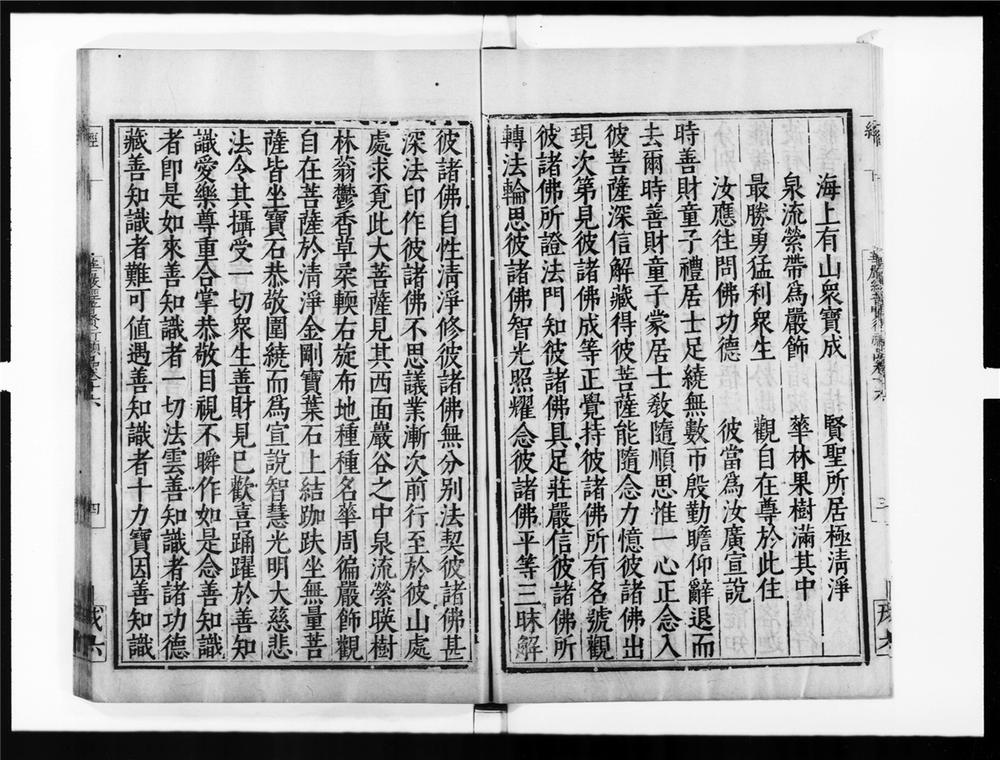 海上有山衆寶成　賢聖所居極淸淨
泉流縈帶爲嚴飾　華林果樹滿其中
最勝勇猛利衆生　觀自在尊於此住
汝應往問佛功德　彼當爲汝廣宣說
時善財童子禮居士足繞無數帀殷勤瞻仰辭退而
去爾時善財童子蒙居士敎隨順思惟一心正念入
彼菩薩深信解藏得彼菩薩能隨念力憶彼諸佛出
現次第見彼諸佛成等正覺持彼諸佛所有名號觀
彼諸佛所證法門知彼諸佛具足莊嚴信彼諸佛所
轉法輪思彼諸佛智光照耀念彼諸佛平等三昧解
彼諸佛自性淸淨修彼諸佛無分別法契彼諸佛甚
深法印作彼諸佛不思議業漸次前行至於彼山處
處求覓此大菩薩見其西面巖谷之中泉流縈暎樹
林蓊鬱香草柔輭右旋布地種種名華周徧嚴飾觀
自在菩薩於淸淨金剛寶葉石上結跏趺坐無量菩
薩皆坐寶石恭敬圍繞而爲宣說智慧光明大慈悲
法令其攝受一切衆生善財見已歡喜踊躍於善知
識愛樂尊重合掌恭敬目視不瞬作如是念善知識
者卽是如來善知識者一切法雲善知識者諸功德
藏善知識者難可値遇善知識者十力寶因善知識
四